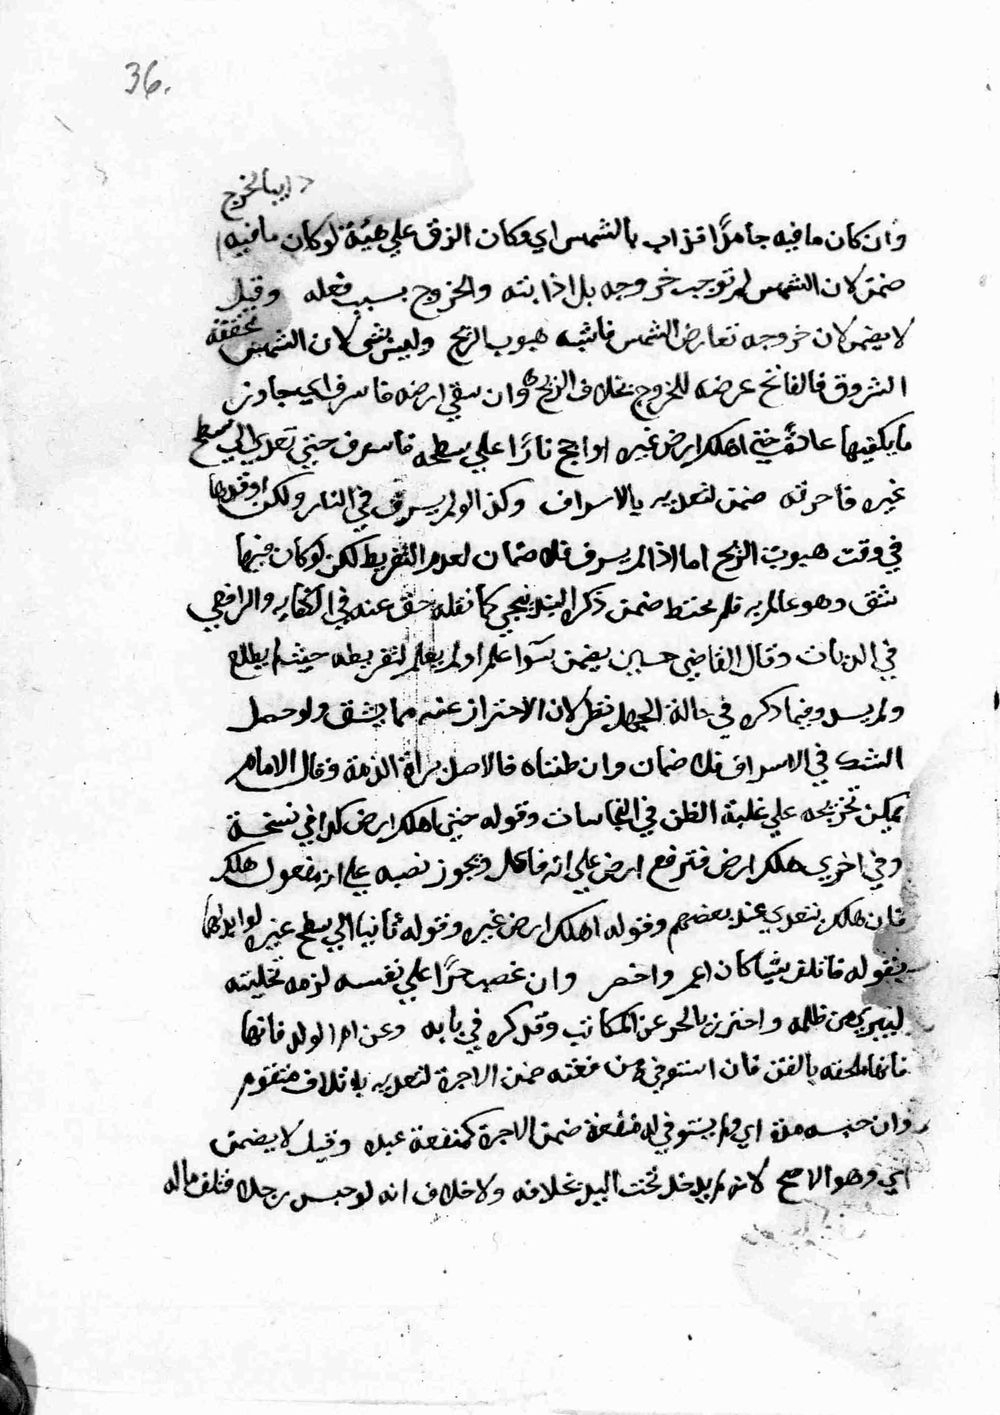 36.
دايبا لخرج
وان كان ما فيه جامدًا فذاب بالشمس اي وكان الزق علي هيئة لو كان ما فيه
ضمن لان الشمس لم توجب خروجه بل اذابته والخروج بسبب فعله وقيل
لا يضمن لان خروجه تعارض الشمس فاشبه هبوب الريح وليس بشي لان الشمس محققة
الشروق فالفاتح عرضه للخروج بخلاف الريح وان سقي ارضه فاسرف اي جاوز
ما يكفيها عادةً حتي اهلك ارض غيره او اجج نارًا علي سطحه فاسرف حتي تعدي الي سطح
غيره فأحرقته ضمن لتعديه بالاسراف وكذا لو لم يسرف في النار ولكن اوقدها
في وقت هبوب الريح اما اذا لم يسرف فلا ضمان لعدم التفريط لكن لو كان فيها
شق وهو عالم به فلم يحتط ضمن ذكره البندنيجي كما نقله عنه في الكفايه والرافعي
في الديات وقال القاضي حسين يضمن سوا علم او لم يعلم لتفريطه حيث لم يطلع
ولم يسد وفيما ذكره في حالة الجهل نظر لان الاحتراز عنه مما يشق ولو حصل
الشك في الاسراف فلا ضمان وان ظنناه فالاصل براة الذمة وقال الامام
يمكن تخريجه علي غلبة الظن في النجاسات وقوله حتي اهلك ارض كذا في نسخة
وفي اخري هلك ارض فترفع ارض علي انه فاعل ويجوز نصبه علي انه مفعول هلك
فان هلك يتعدي عند بعضهم وقوله اهلك ارض غيره وقوله ثانيا الي سطح غيره لو ابدلها
بقوله فاتلف شيا كان اعم واخصر وان غصب حرًا علي نفسه لزمه تخليته
ليبري من ظلمه واحترز بالحر عن المكاتب وقد ذكره في بابه وعن ام الولد فانها
فانها ملحقه بالقن فان استوفي من فعته ضمن الاجرة لتعديه باتلاف متقوم
وان حبسه مدة اي ولم يستوفي له منفعة ضمن الاجرة كمنفعة عبده وقيل لا يضمن
اي وهو الاصح لانه لم يدخل تحت اليد بخلافه ولا خلاف انه لو حبس رجلا فتلف ماله